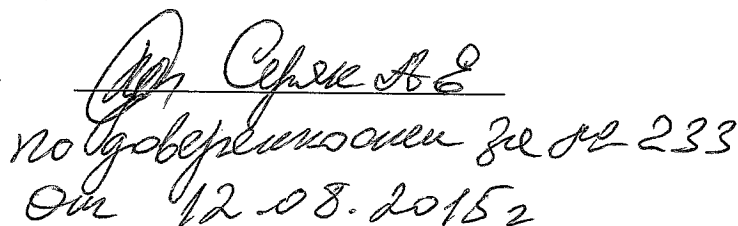 Серяк А Е
по доверенности за № 233
от 12.08.2015г